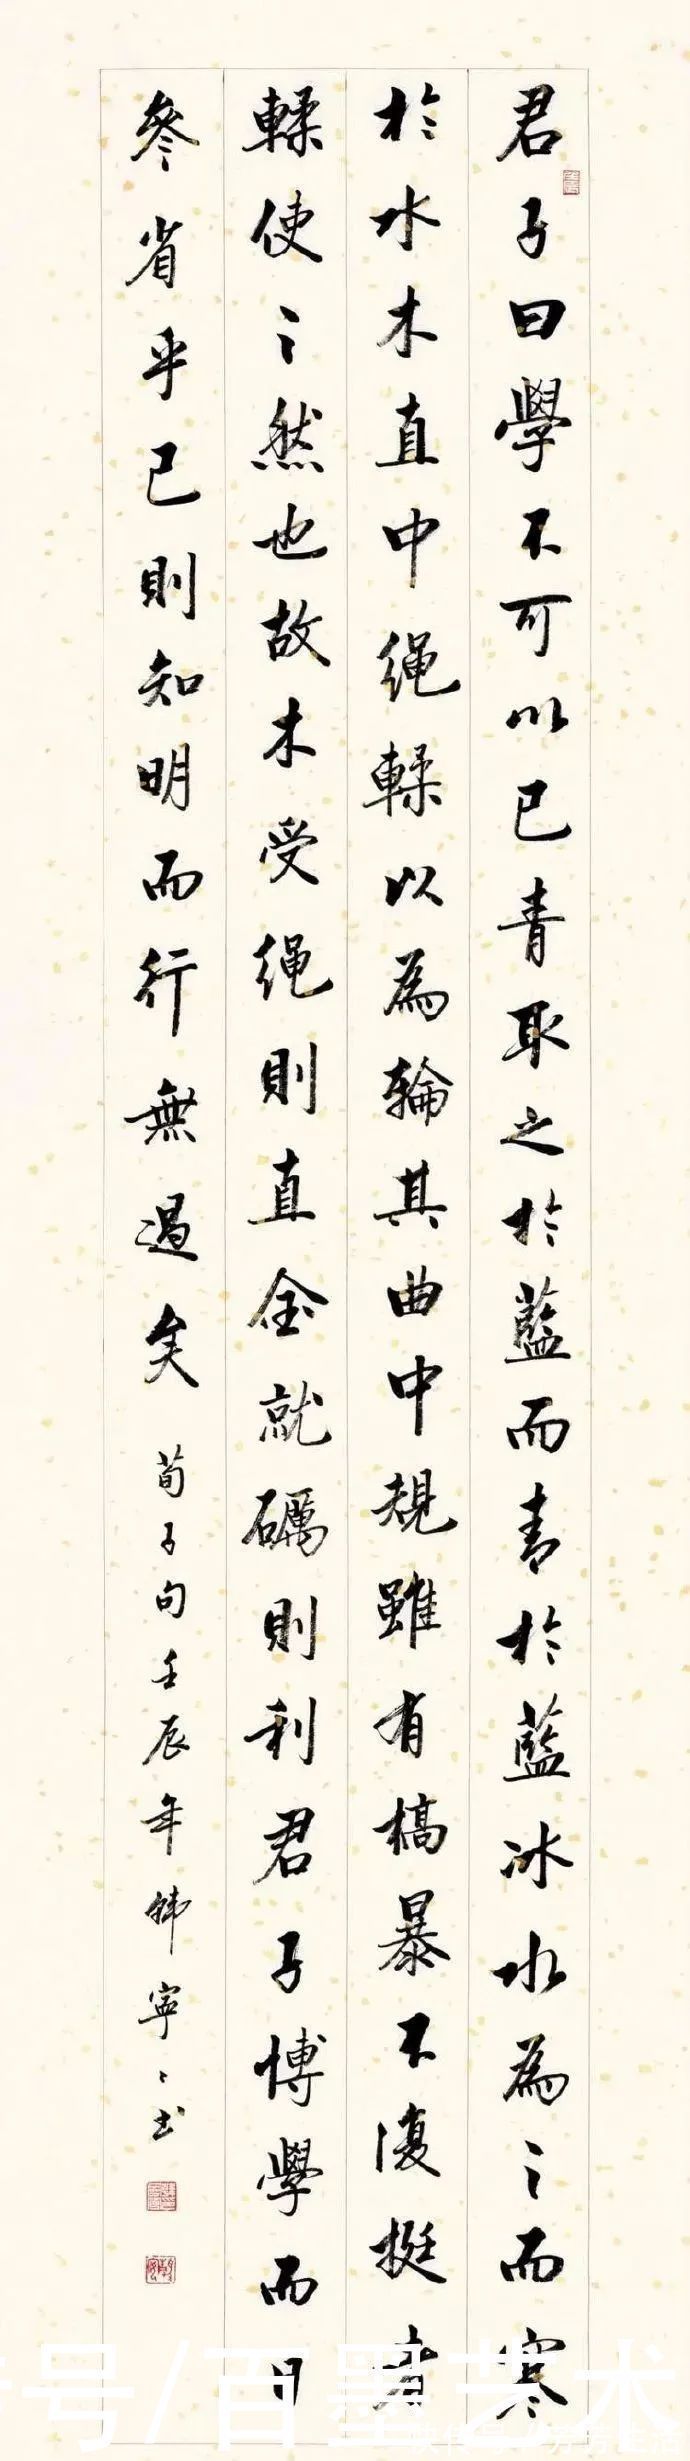 君子曰學不可以已青取之於藍而青於藍冰水為之而寒
於水木直中绳輮以為輪其曲中規雖有槁暴不復挺者
輮使之然也故木受绳則直金就礪則利君子博學而日
參省乎己則知明而行無過矣
荀子句壬辰年韩寧〻书
号/百墨艺术
快传号/芳芳生活